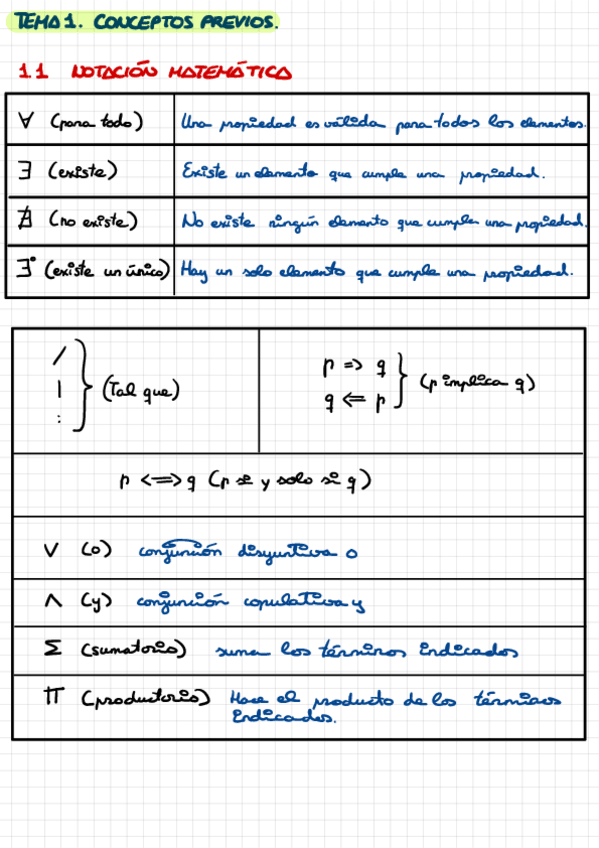 TEMA 1. CONCEPTOS PREVIOS.
1.1 NOTACIÓN MATEMÁTICA
∀ (para todo) Una propiedad es válida para todos los elementos.
∃ (existe) Existe un elemento que cumple una propiedad.
∄ (no existe) No existe ningún elemento que cumple una propiedad.
∃° (existe un único) Hay un solo elemento que cumple una propiedad.
/
|
:
} (Tal que)
p => q
q <= p
} (p implica q)
p <=> q (p si y solo si q)
∨ (o) conjunción disyuntiva o
∧ (y) conjunción copulativa y
Σ (sumatorio) suma los términos indicados
Π (productorio) Hace el producto de los términos
indicados.